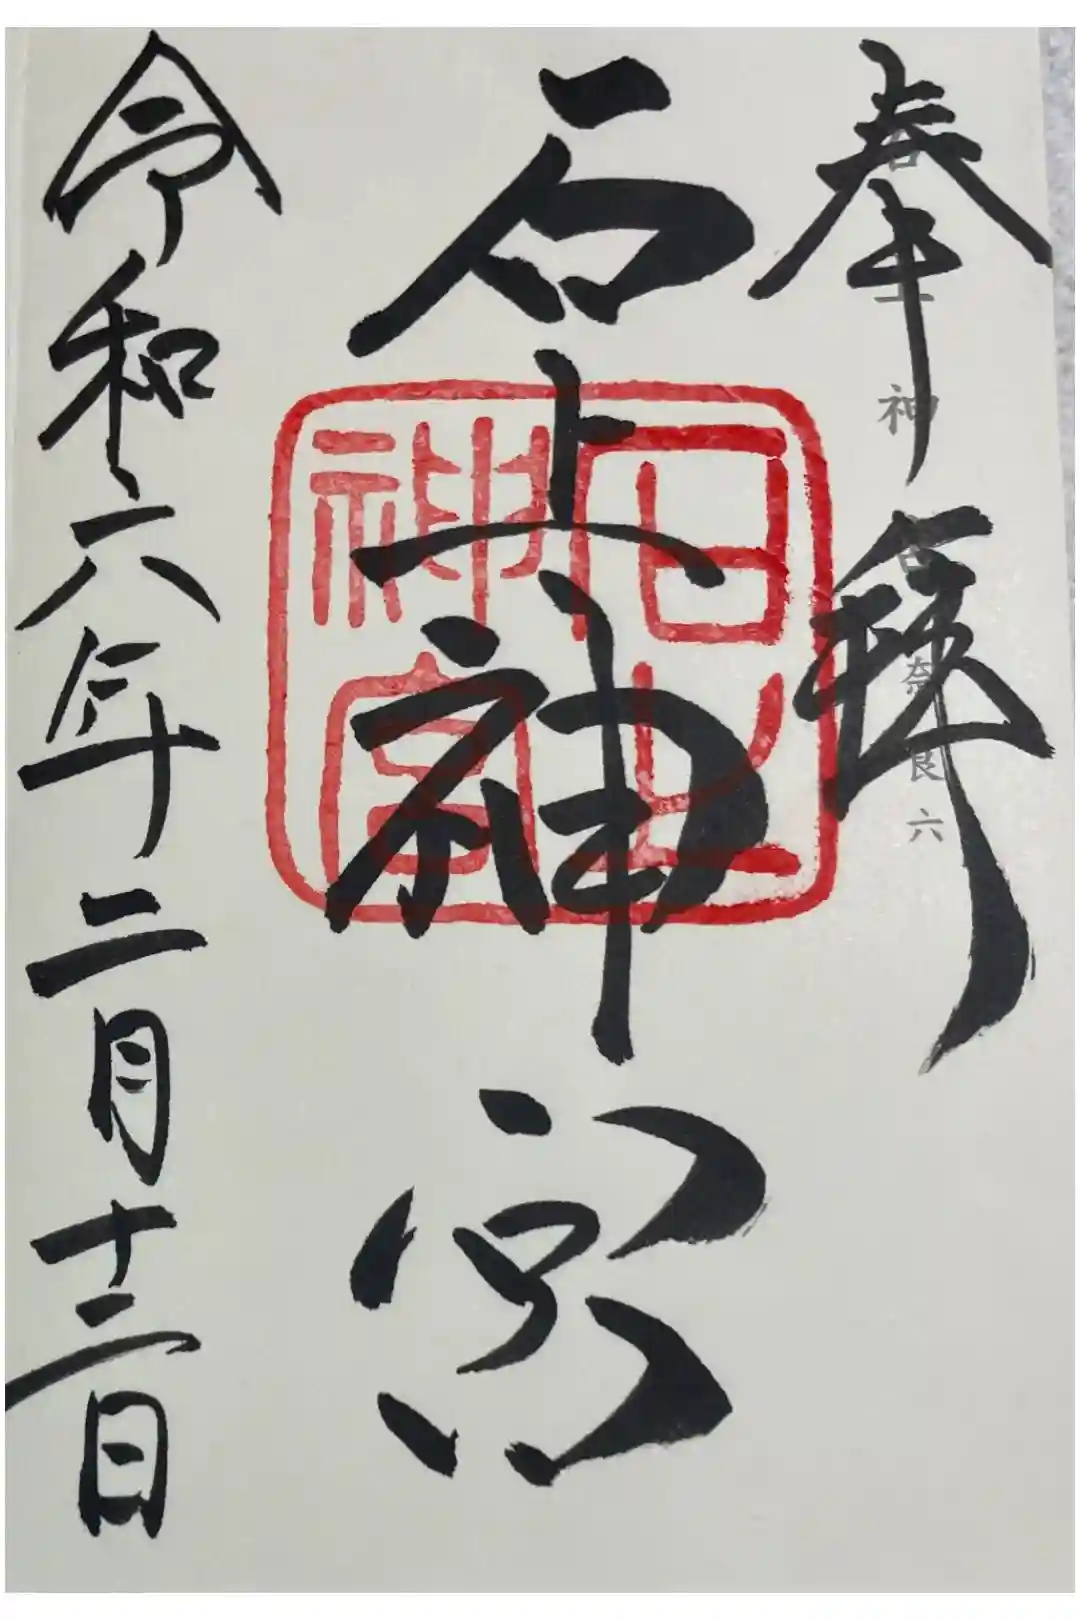 奉拝
石上神宮
石上
神宮
神
奈
良
六
令和六年二月十二日